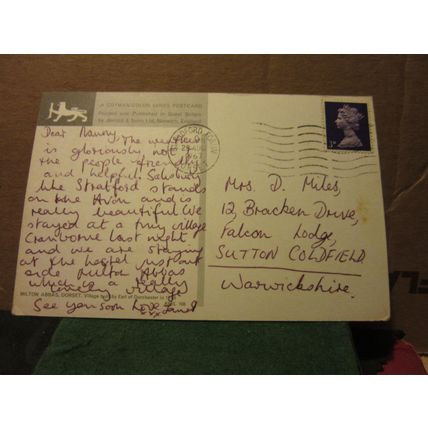 A COTMAN-COLOR SERIES POSTCARD
Printed and Published in Great Britain
by Jarrold & Sons Ltd, Norwich, England
Dear Nanny, The weather
is gloriously hot
the people friendly
and helpful. Salisbury
like Stratford stands
on the Avon and is
really beautiful. We
stayed at a tiny village
Cranborne last night
and we are staying
at the hostel just out
side Milton Abbas
which is a really
lovely village
See you soon love Janet
xxx
MILTON ABBAS, DORSET. Village built by Earl of Dorchester in
BLANDFORD FORUM
3D
Mrs. D. Miles,
12, Bracken Drive,
Falcon Lodge,
SUTTON COLDFIELD
Warwickshire.